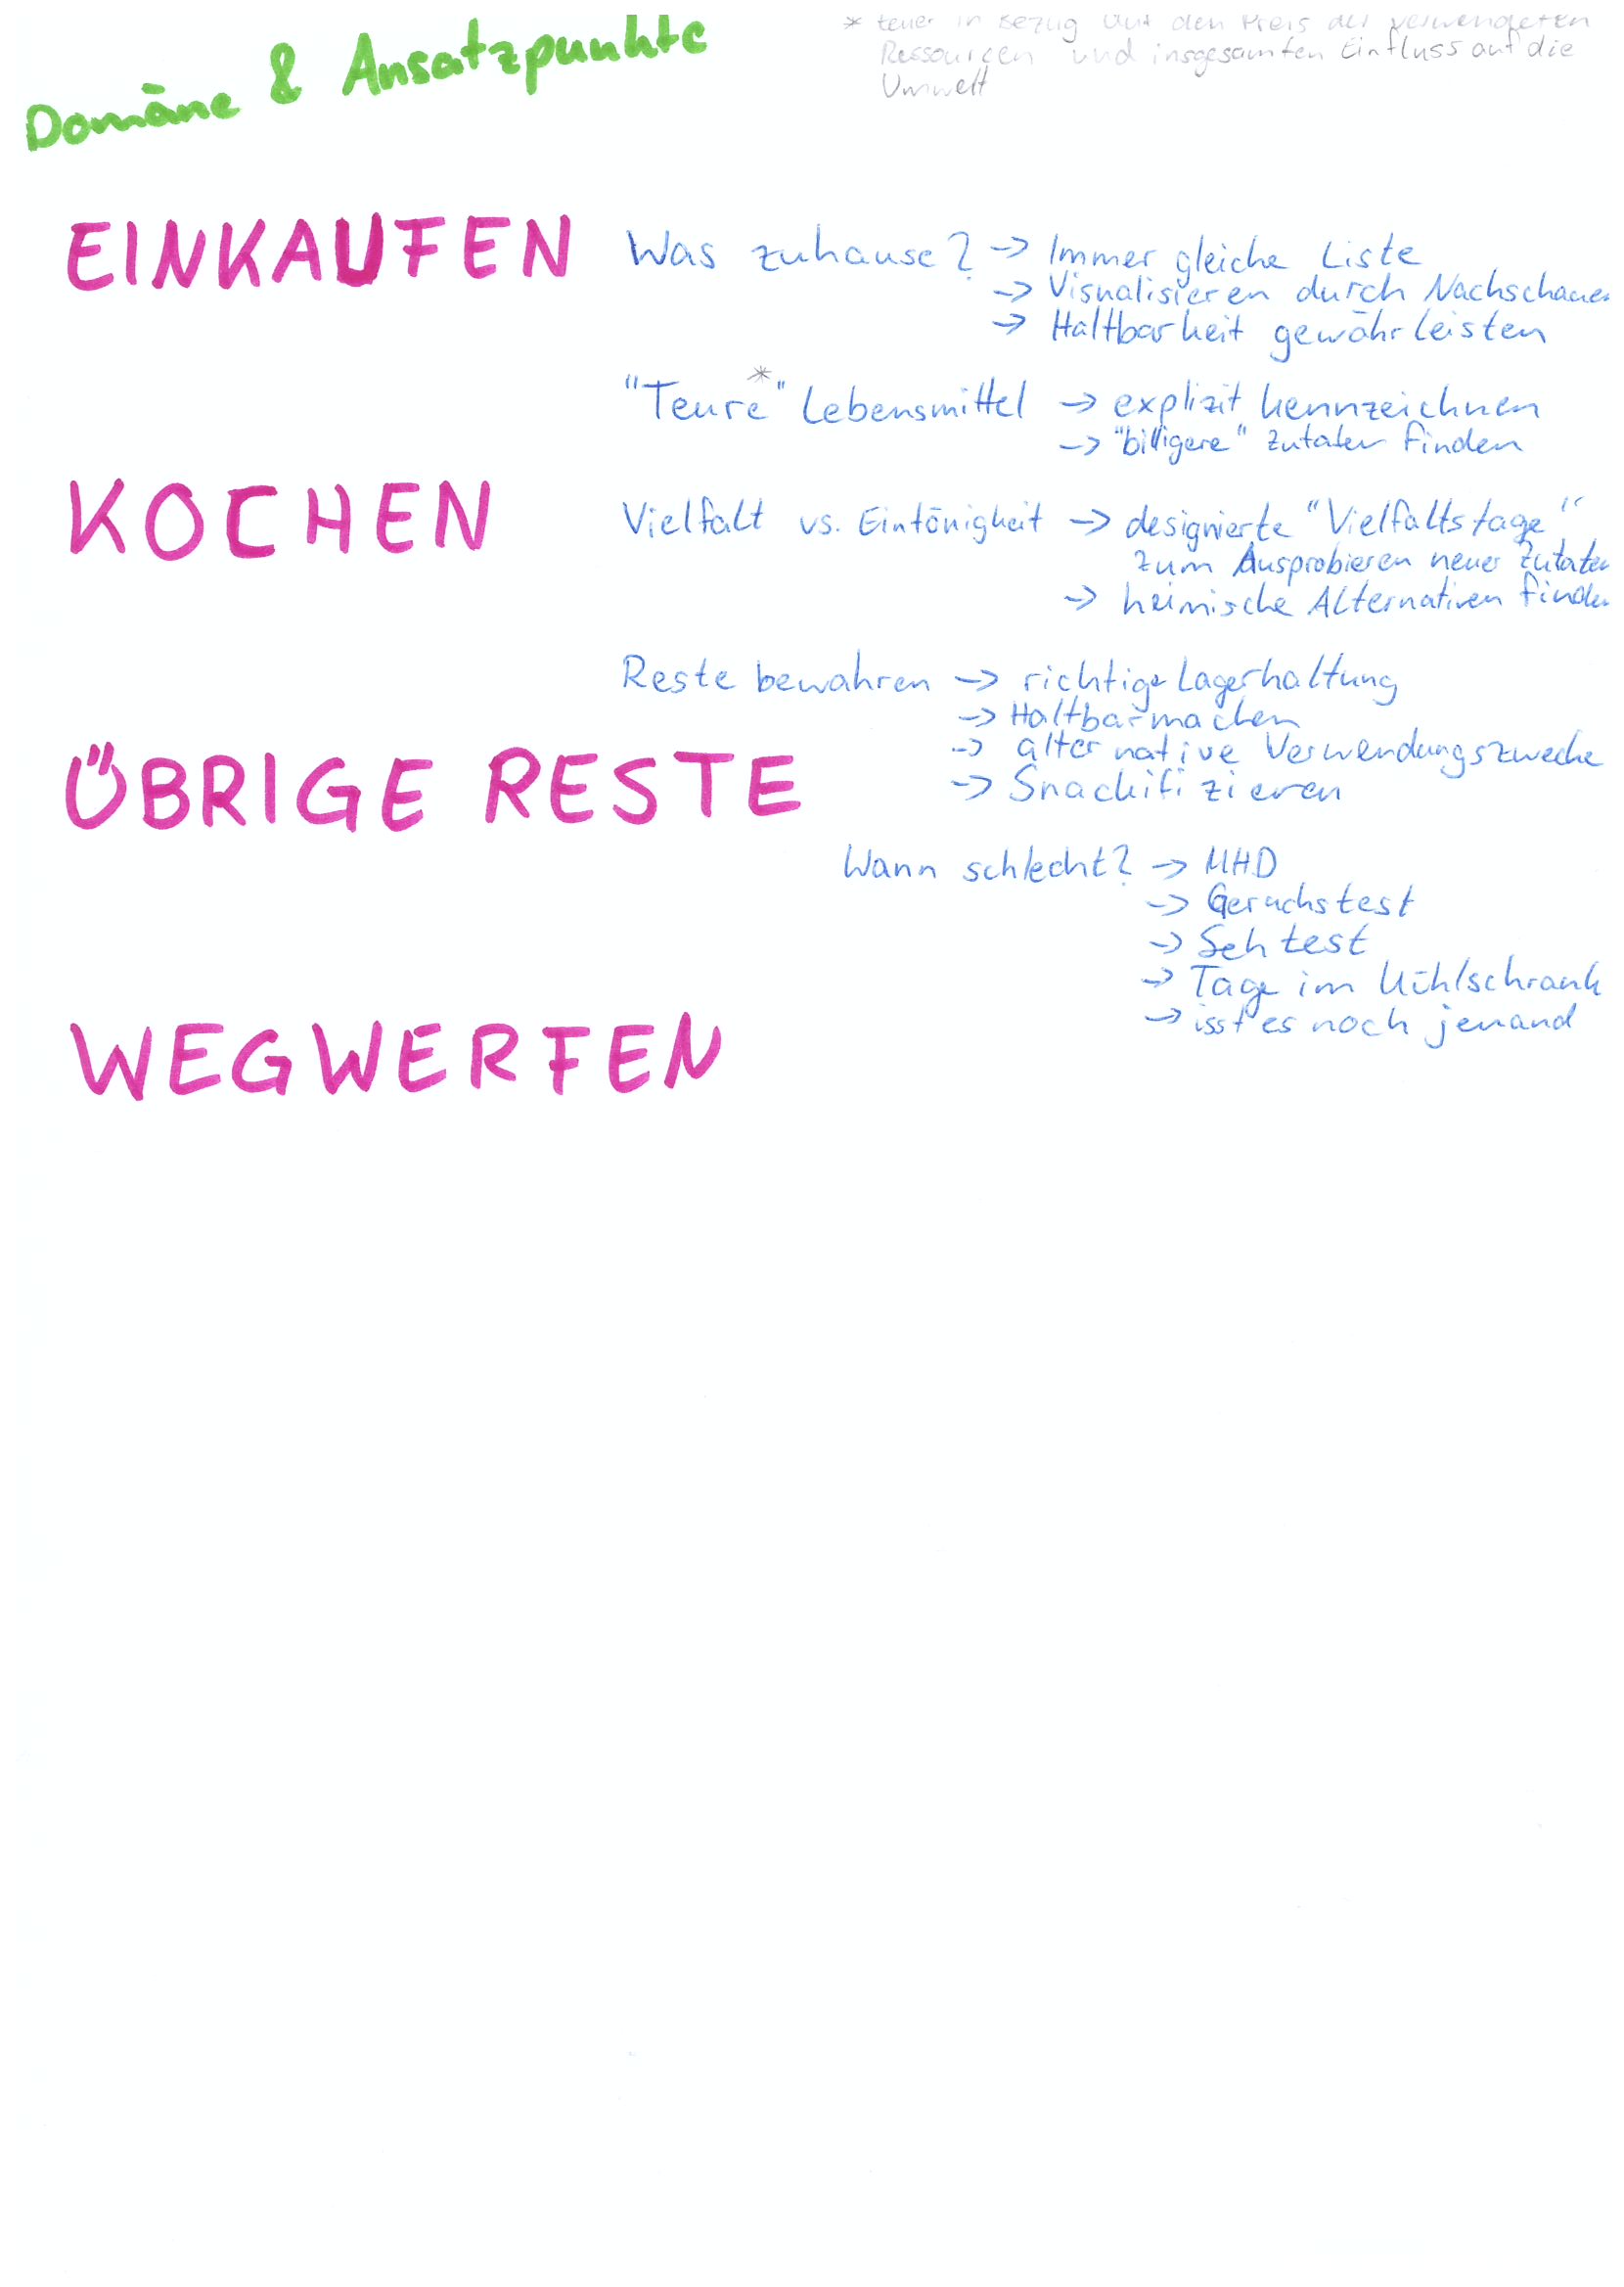 Domäne & Ansatzpunkte
* teuer in Bezug auf den Preis der verwendeten
Ressourcen und insgesamten Einfluss auf die
Umwelt
EINKAUFEN
Was zuhause? -> Immer gleiche Liste
-> Visualisieren durch Nachschauen
-> Haltbarkeit gewährleisten
"Teure*" Lebensmittel -> explizit kennzeichnen
-> "billigere" Zutaten finden
KOCHEN
Vielfalt vs. Eintönigkeit -> designierte "Vielfaltstage"
zum Ausprobieren neuer Zutaten
-> heimische Alternativen finden
Reste bewahren -> richtige Lagerhaltung
-> Haltbarmachen
-> alternative Verwendungszwecke
-> Snackifizieren
ÜBRIGE RESTE
Wann schlecht? -> MHD
-> Geruchstest
-> Sehtest
-> Tage im Kühlschrank
-> isst es noch jemand
WEGWERFEN